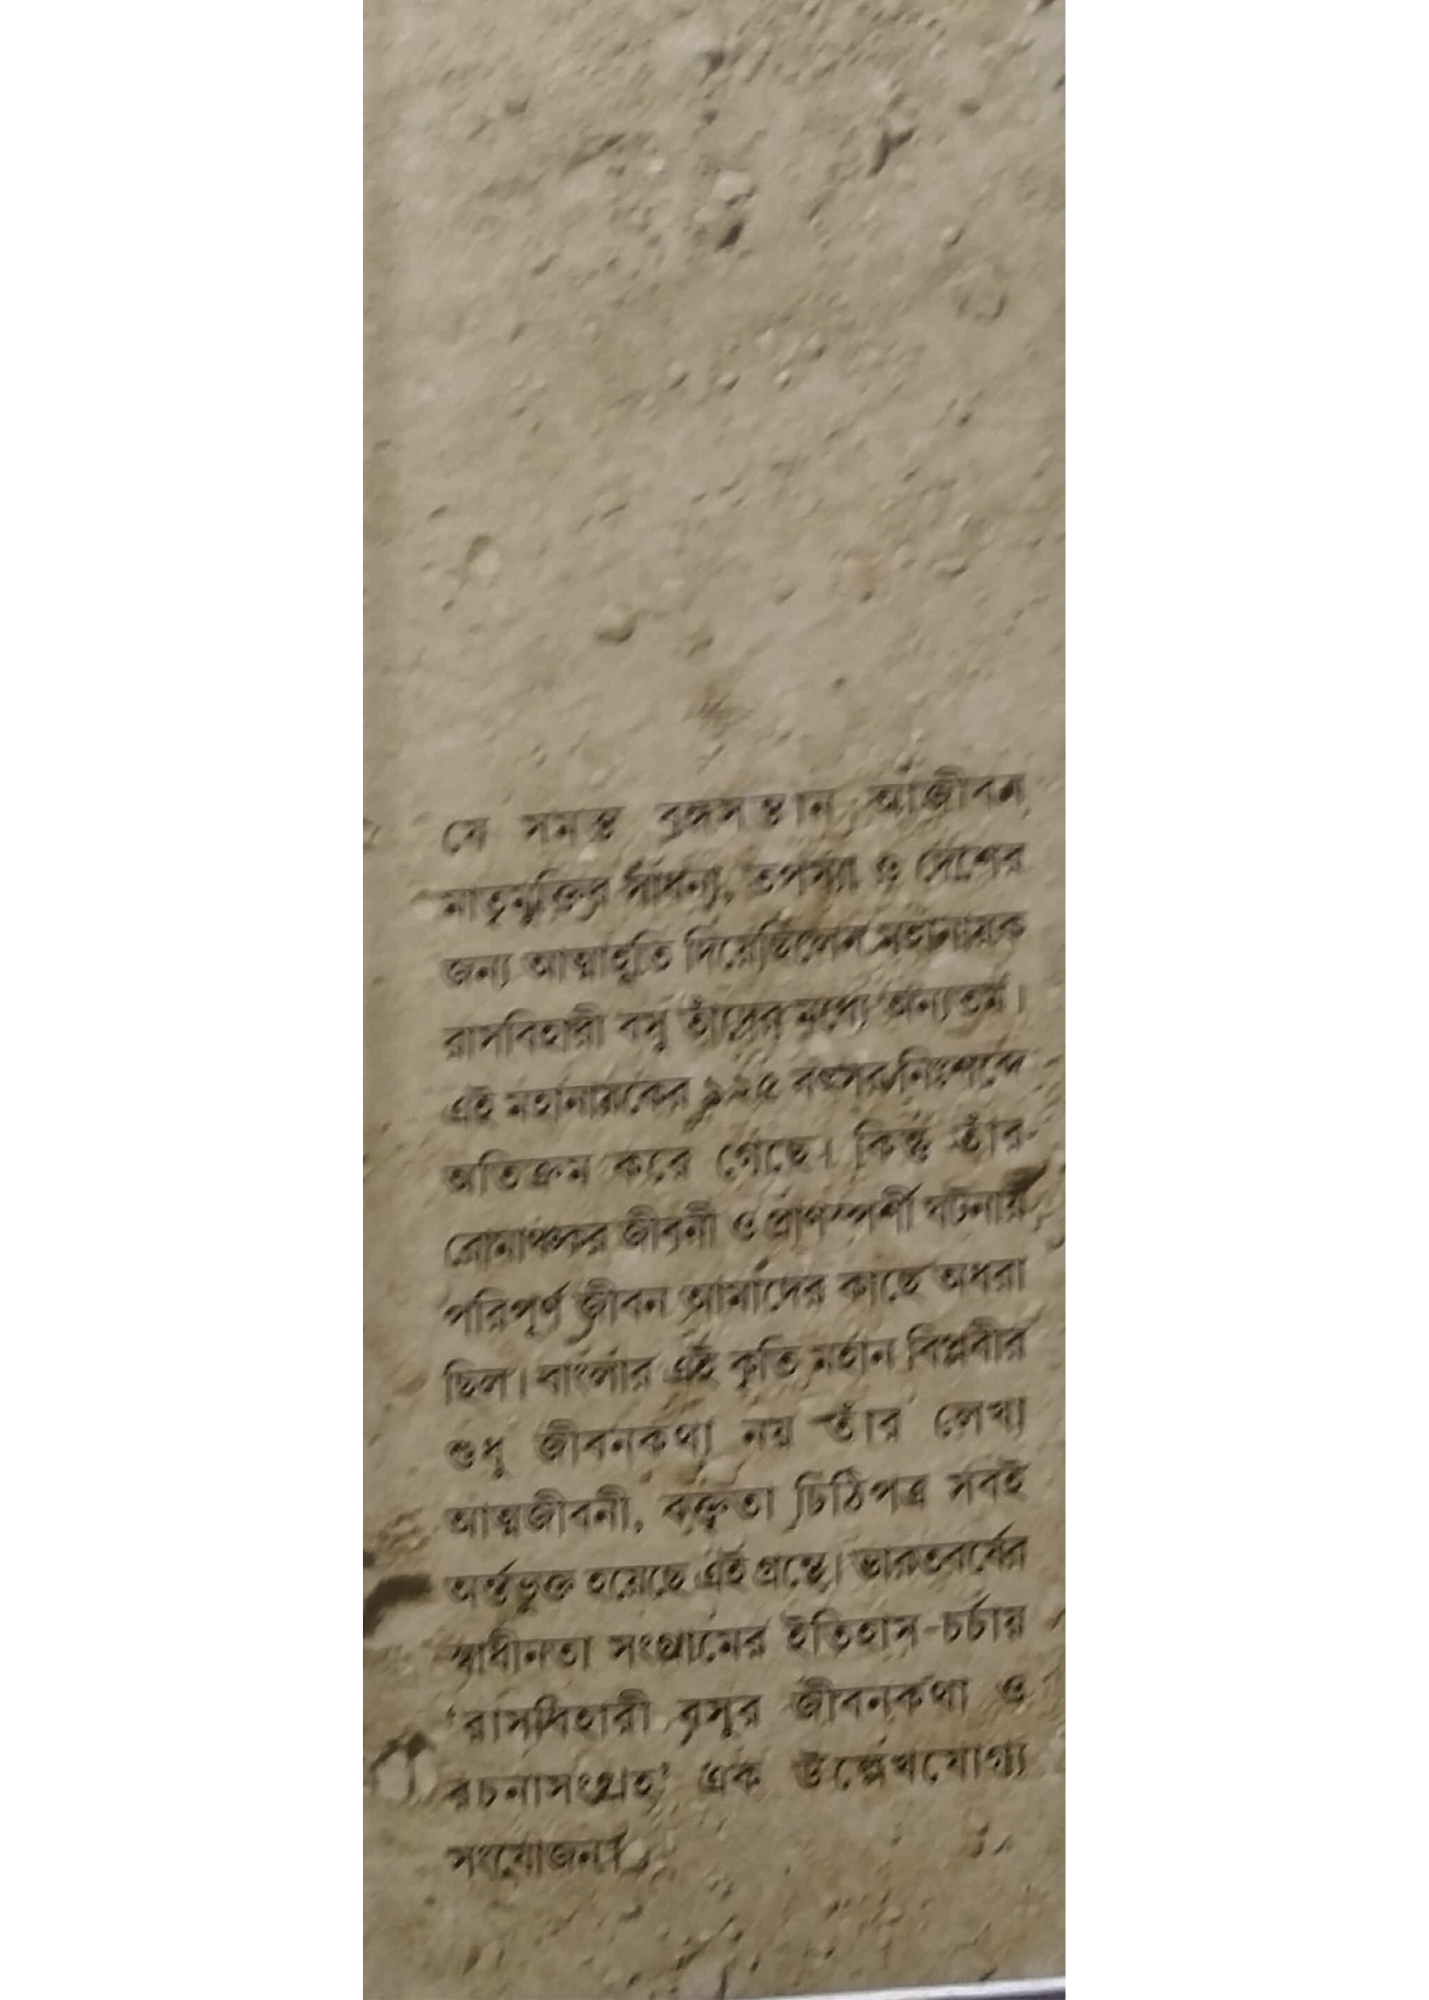 যে সমস্ত বঙ্গসন্তান আজীবন
মাতৃমুক্তির সাধনা, তপস্যা ও দেশের
জন্য আত্মাহুতি দিয়েছিলেন মহানায়ক
রাসবিহারী বসু তাঁদের মধ্যে অন্যতম।
এই মহানায়কের ১২৫ বৎসর নিঃশব্দে
অতিক্রম করে গেছে। কিন্তু তাঁর
রোমাঞ্চকর জীবনী ও প্রাণস্পর্শী ঘটনায়
পরিপূর্ণ জীবন আমাদের কাছে অধরা
ছিল। বাংলার এই কৃতি মহান বিপ্লবীর
শুধু জীবনকথা নয় তাঁর লেখা
আত্মজীবনী, বক্তৃতা চিঠিপত্র সবই
অর্ন্তভুক্ত হয়েছে এই গ্রন্থে। ভারতবর্ষের
স্বাধীনতা সংগ্রামের ইতিহাস-চর্চায়
‘রাসবিহারী বসুর জীবনকথা ও
রচনাসংগ্রহ’ এক উল্লেখযোগ্য
সংযোজন।